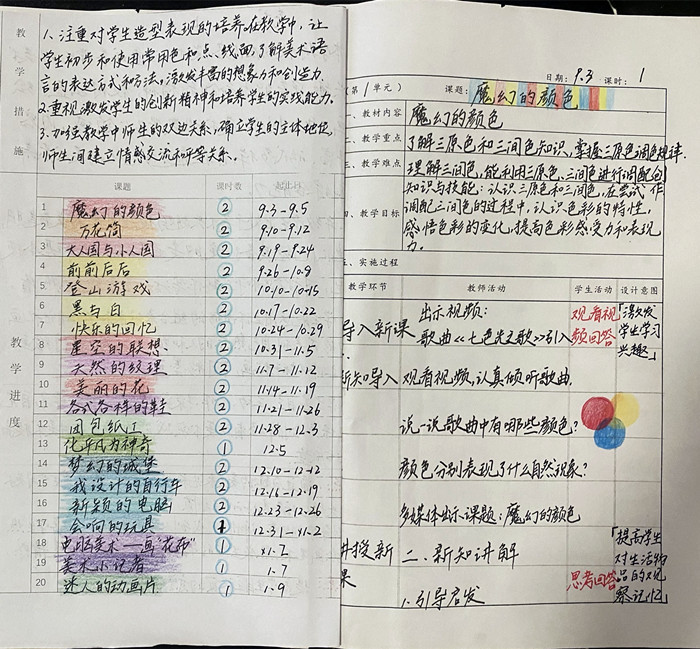 教学措施
1、注重对学生造型表现的培养。在教学中，让
学生初步和使用常用色和点、线面，了解美术语
言的表达方式和方法，激发丰富的想象力和创造力.
2.重视激发学生的创新精神和培养学生的实践能力.
3.加强教学中师生的双边关系，确立学生的主体地位
师生间建立情感交流和平等关系.
教学进度
课题 课时数 起止日
1 魔幻的颜色 2 9.3-9.5
2 万花筒 2 9.10-9.12
3 大人国与小人国 2 9.19-9.24
4 前前后后 2 9.26-10.9
5 登山游戏 2 10.10-10.15
6 黑与白 2 10.17-10.22
7 快乐的回忆 2 10.24-10.29
8 星空的联想 2 10.31-11.5
9 天然的纹理 2 11.7-11.12
10 美丽的花 2 11.14-11.19
11 各式各样的鞋 2 11.21-11.26
12 面包纸工 2 11.28-12.3
13 化平凡为神奇 1 12.5
14 梦幻的城堡 2 12.10-12.12
15 我设计的自行车 2 12.16-12.19
16 新颖的电脑 2 12.23-12.26
17 会响的玩具 12.31-
18 电脑美术——画"花布" 1
19 美术小记者 1 1.7
20 迷人的动画片 1 1.9
日期：9.3 课时：1
（第1单元） 课题：魔幻的颜色
一、教材内容 魔幻的颜色
二、教学重点 了解三原色和三间色知识，掌握三原色调色规律.
三、教学难点 理解三间色，能利用三原色、三间色进行调配
四、教学目标 知识与技能：认识三原色和三间色，在尝试
调配三间色的过程中，认识色彩的特性，
感悟色彩的变化，提高色彩感受力和表现
力.
五、实施过程
教学环节 教师活动 学生活动 设计意图
导入新课 出示视频：
歌曲《七色光之歌》引入
观看视
频回答
「激发
学生学习
兴趣」
新知导入 观看视频，认真倾听歌曲.
说一说歌曲中有哪些颜色？
颜色分别表现了什么自然现象？
多媒体出示课题：魔幻的颜色
讲授新
课
二、新知讲解
1.引导启发
思考回答
「提高学生
对生活物
品的观
察记忆」